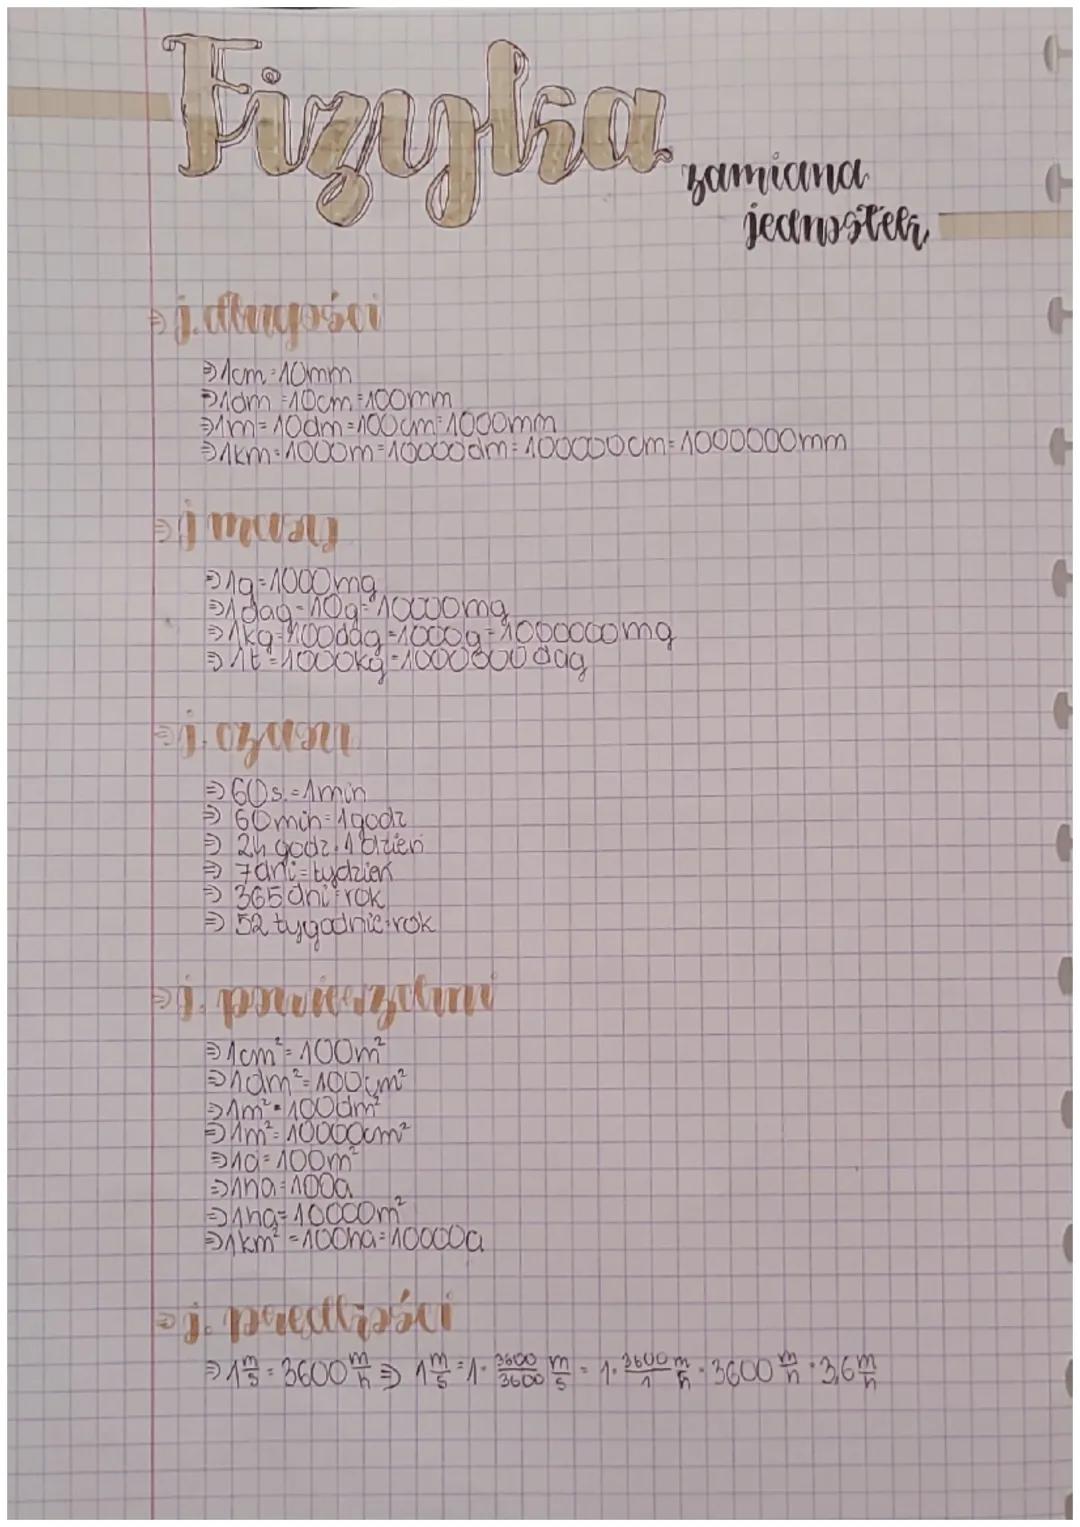 Fizyka
zamiana
jednostek
⇒ j. długości
⇒ 1cm = 10mm
⇒ 1dm = 10cm = 100mm
⇒ 1m = 10dm = 100cm = 1000mm
⇒ 1km = 1000m = 10000dm = 100000cm = 1000000mm
⇒ j masy
⇒ 1g = 1000mg
⇒ 1dag = 10g = 10000mg
⇒ 1kg = 100dag = 1000g = 1000000mg
⇒ 1t = 1000kg = 1000000dag
⇒ j. czasu
⇒ 60s. = 1min
⇒ 60min = 1godz
⇒ 24 godz. 1 dzień
⇒ 7dni = tydzień
⇒ 365 dni = rok
⇒ 52 tygodnie = rok
⇒ j. powierzchni
⇒ 1cm² = 100m²
⇒ 1dm² = 100cm²
⇒ 1m² = 100dm²
⇒ 1m² = 10000cm²
⇒ 1a = 100m²
⇒ 1ha = 100a
⇒ 1ha = 10000m²
⇒ 1km² = 100ha = 10000a
⇒ j. prędkości
⇒ 1 m/s = 3600 m/h ⇒ 1 m/s = 1 · 3600/3600 m/s = 1 · 3600/1 m/h = 3600 m/h = 3,6 m/h